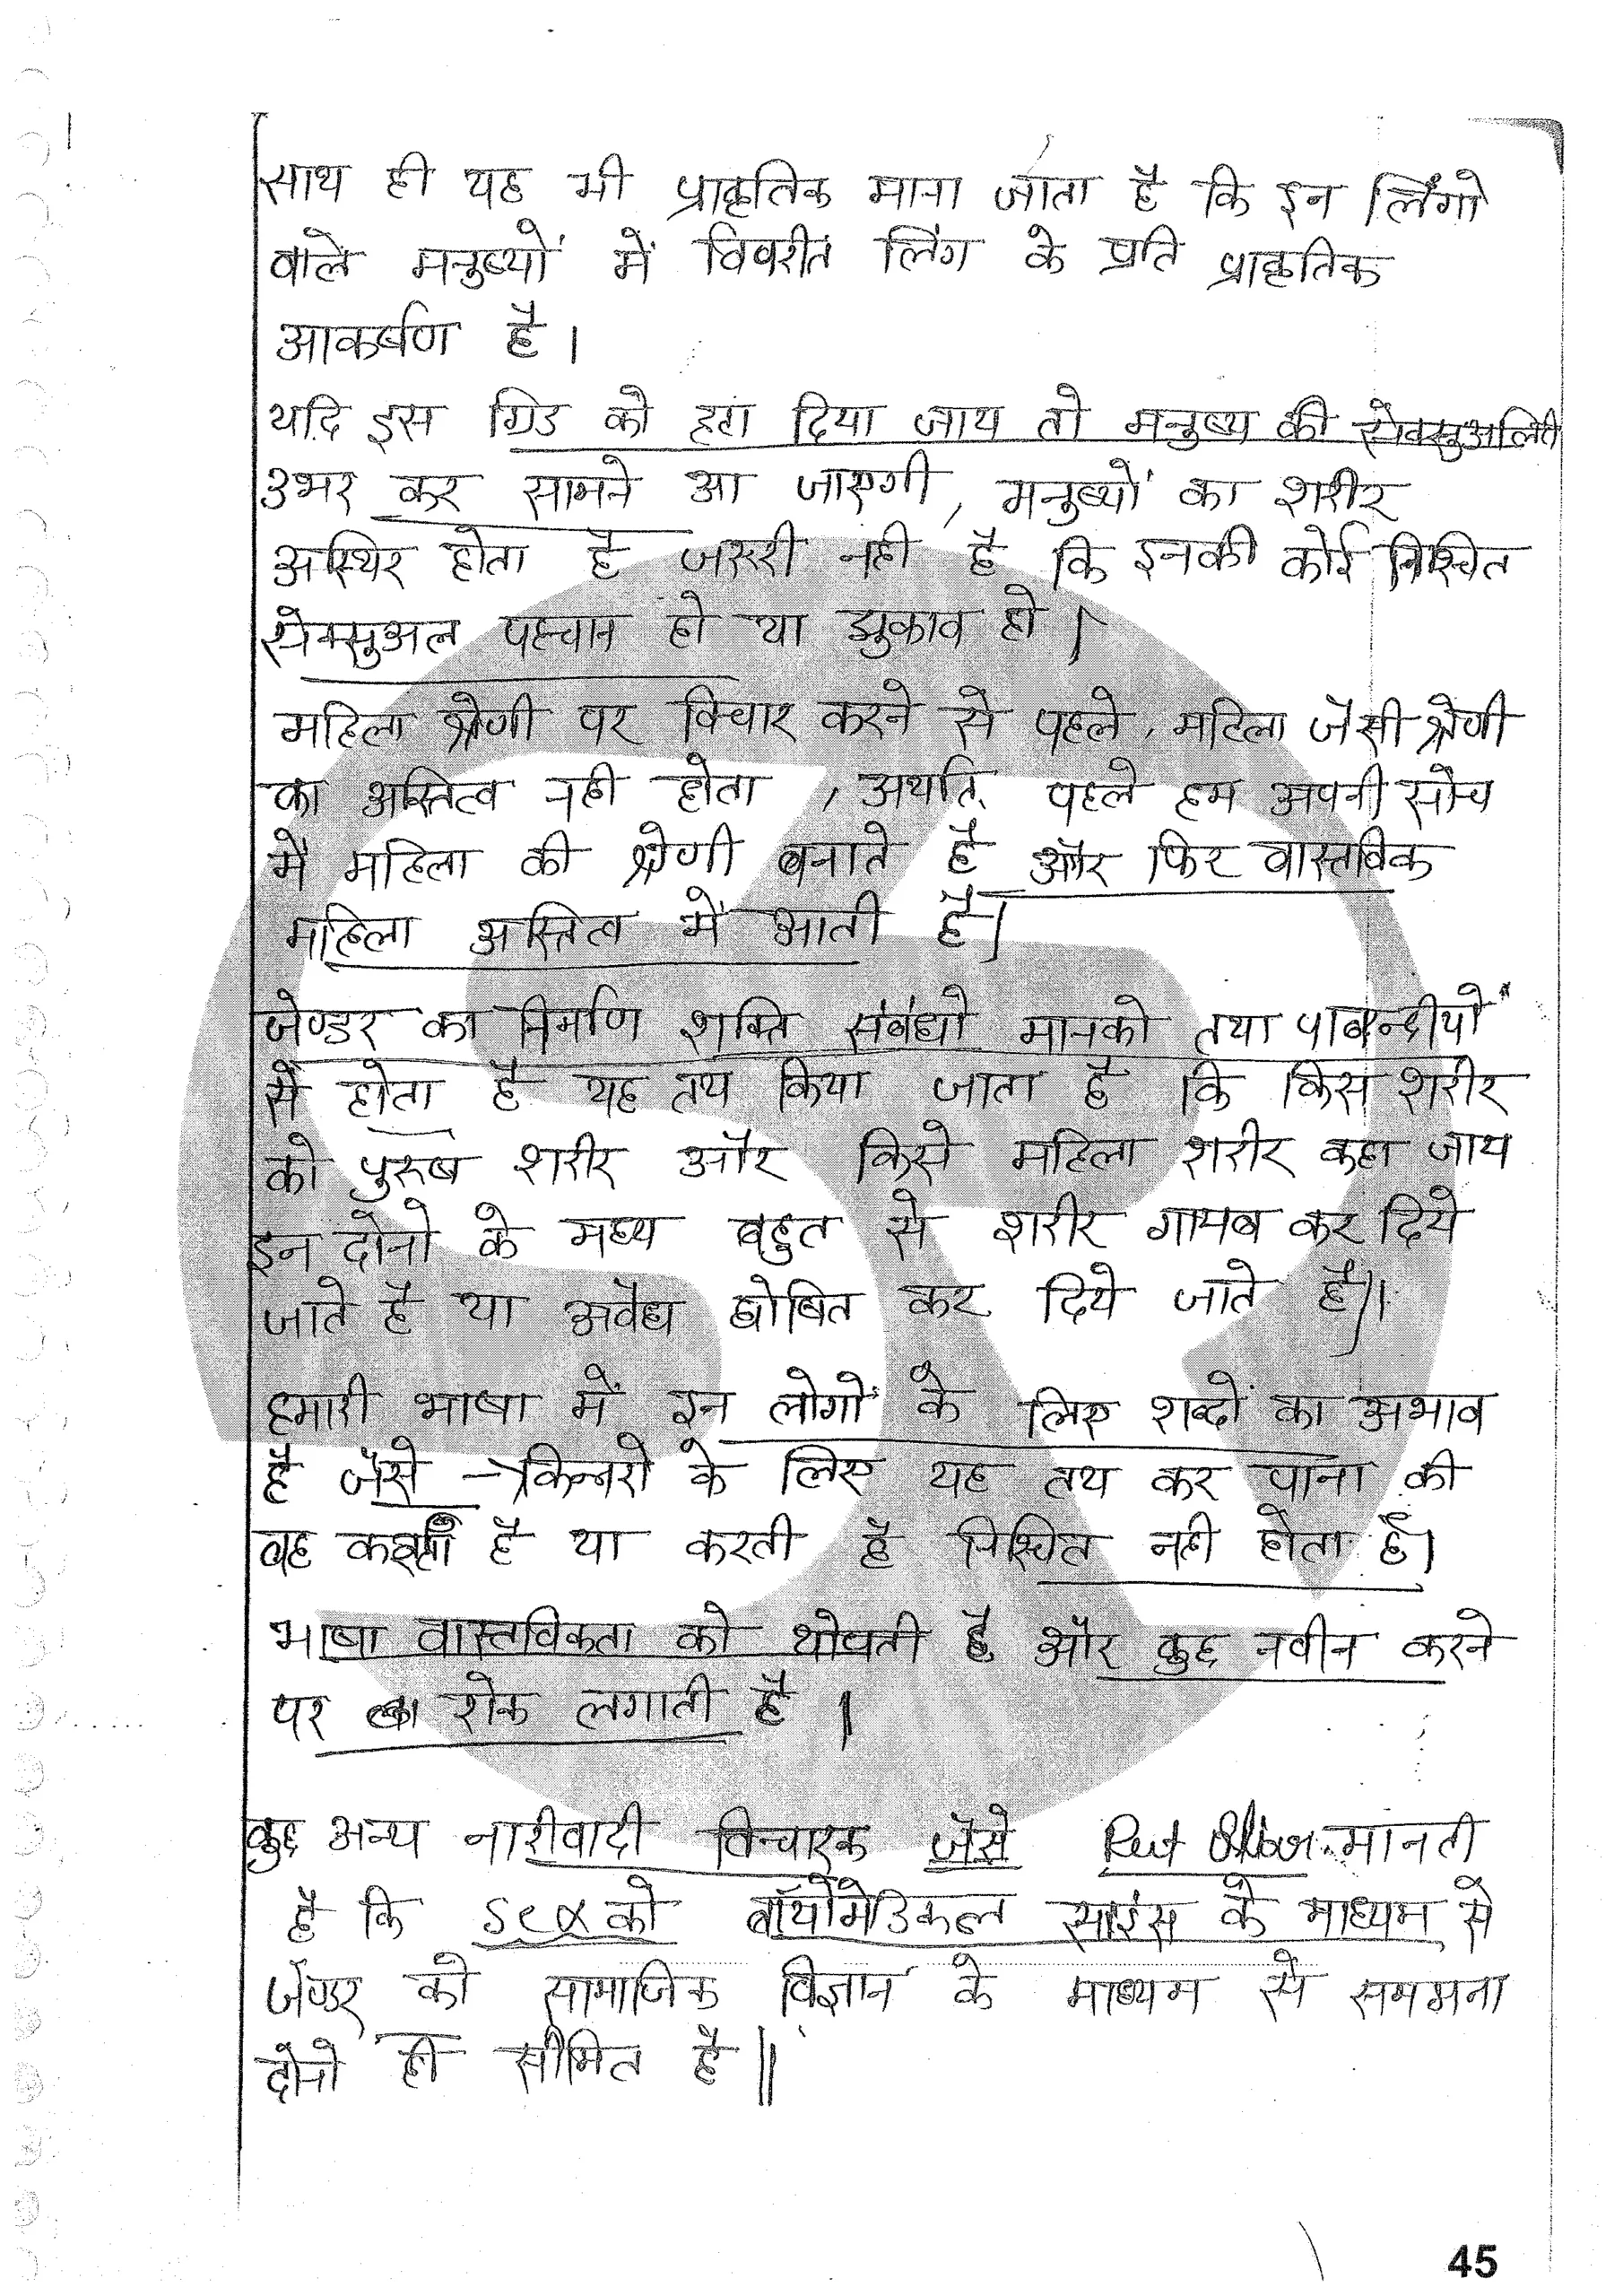 साथ ही यह भी प्राकृतिक माना जाता है कि इन लिंगो
वाले मनुष्यों में विपरीत लिंग के प्रति प्राकृतिक
आकर्षण है।
यदि इस ग्रिड को हटा दिया जाय तो मनुष्य की सेक्सुअलिती
उभर कर सामने आ जाएगी, मनुष्यों का शरीर
अस्थिर होता है जरुरी नही है कि इनकी कोई निश्चित
सेक्सुअल पहचान हो या झुकाव हो।
महिला श्रेणी पर विचार करने से पहले, महिला जैसी श्रेणी
का अस्तित्व नही होता, अर्थात् पहले हम अपनी सोच
में महिला की श्रेणी बनाते है और फिर वास्तविक
महिला अस्तित्व में आती है।
जेण्डर का निर्माण शक्ति संबंधो मानको तथा पाबन्दीयों
से होता है यह तय किया जाता है कि किस शरीर
को पुरुष शरीर और किसे महिला शरीर कहा जाय
इन दोनो के मध्य बहुत से शरीर गायब कर दिये
जाते है या अवैध घोषित कर दिये जाते है।
हमारी भाषा में इन लोगों के लिए शब्दों का अभाव
है जैसे → किन्नरो के लिए यह तय कर पाना की
वह है या करती है निश्चित नही होता है।
भाषा वास्तविकता को थोपती है और कुछ नवीन करने
पर रोक लगाती है।
कुछ अन्य नारीवादी विचारक जैसे मानती
है कि Sex को बॉयोमेडिकल साइंस के माध्यम से
जेण्डर को सामाजिक विज्ञान के माध्यम से समझना
दोनो ही सीमित है॥
45